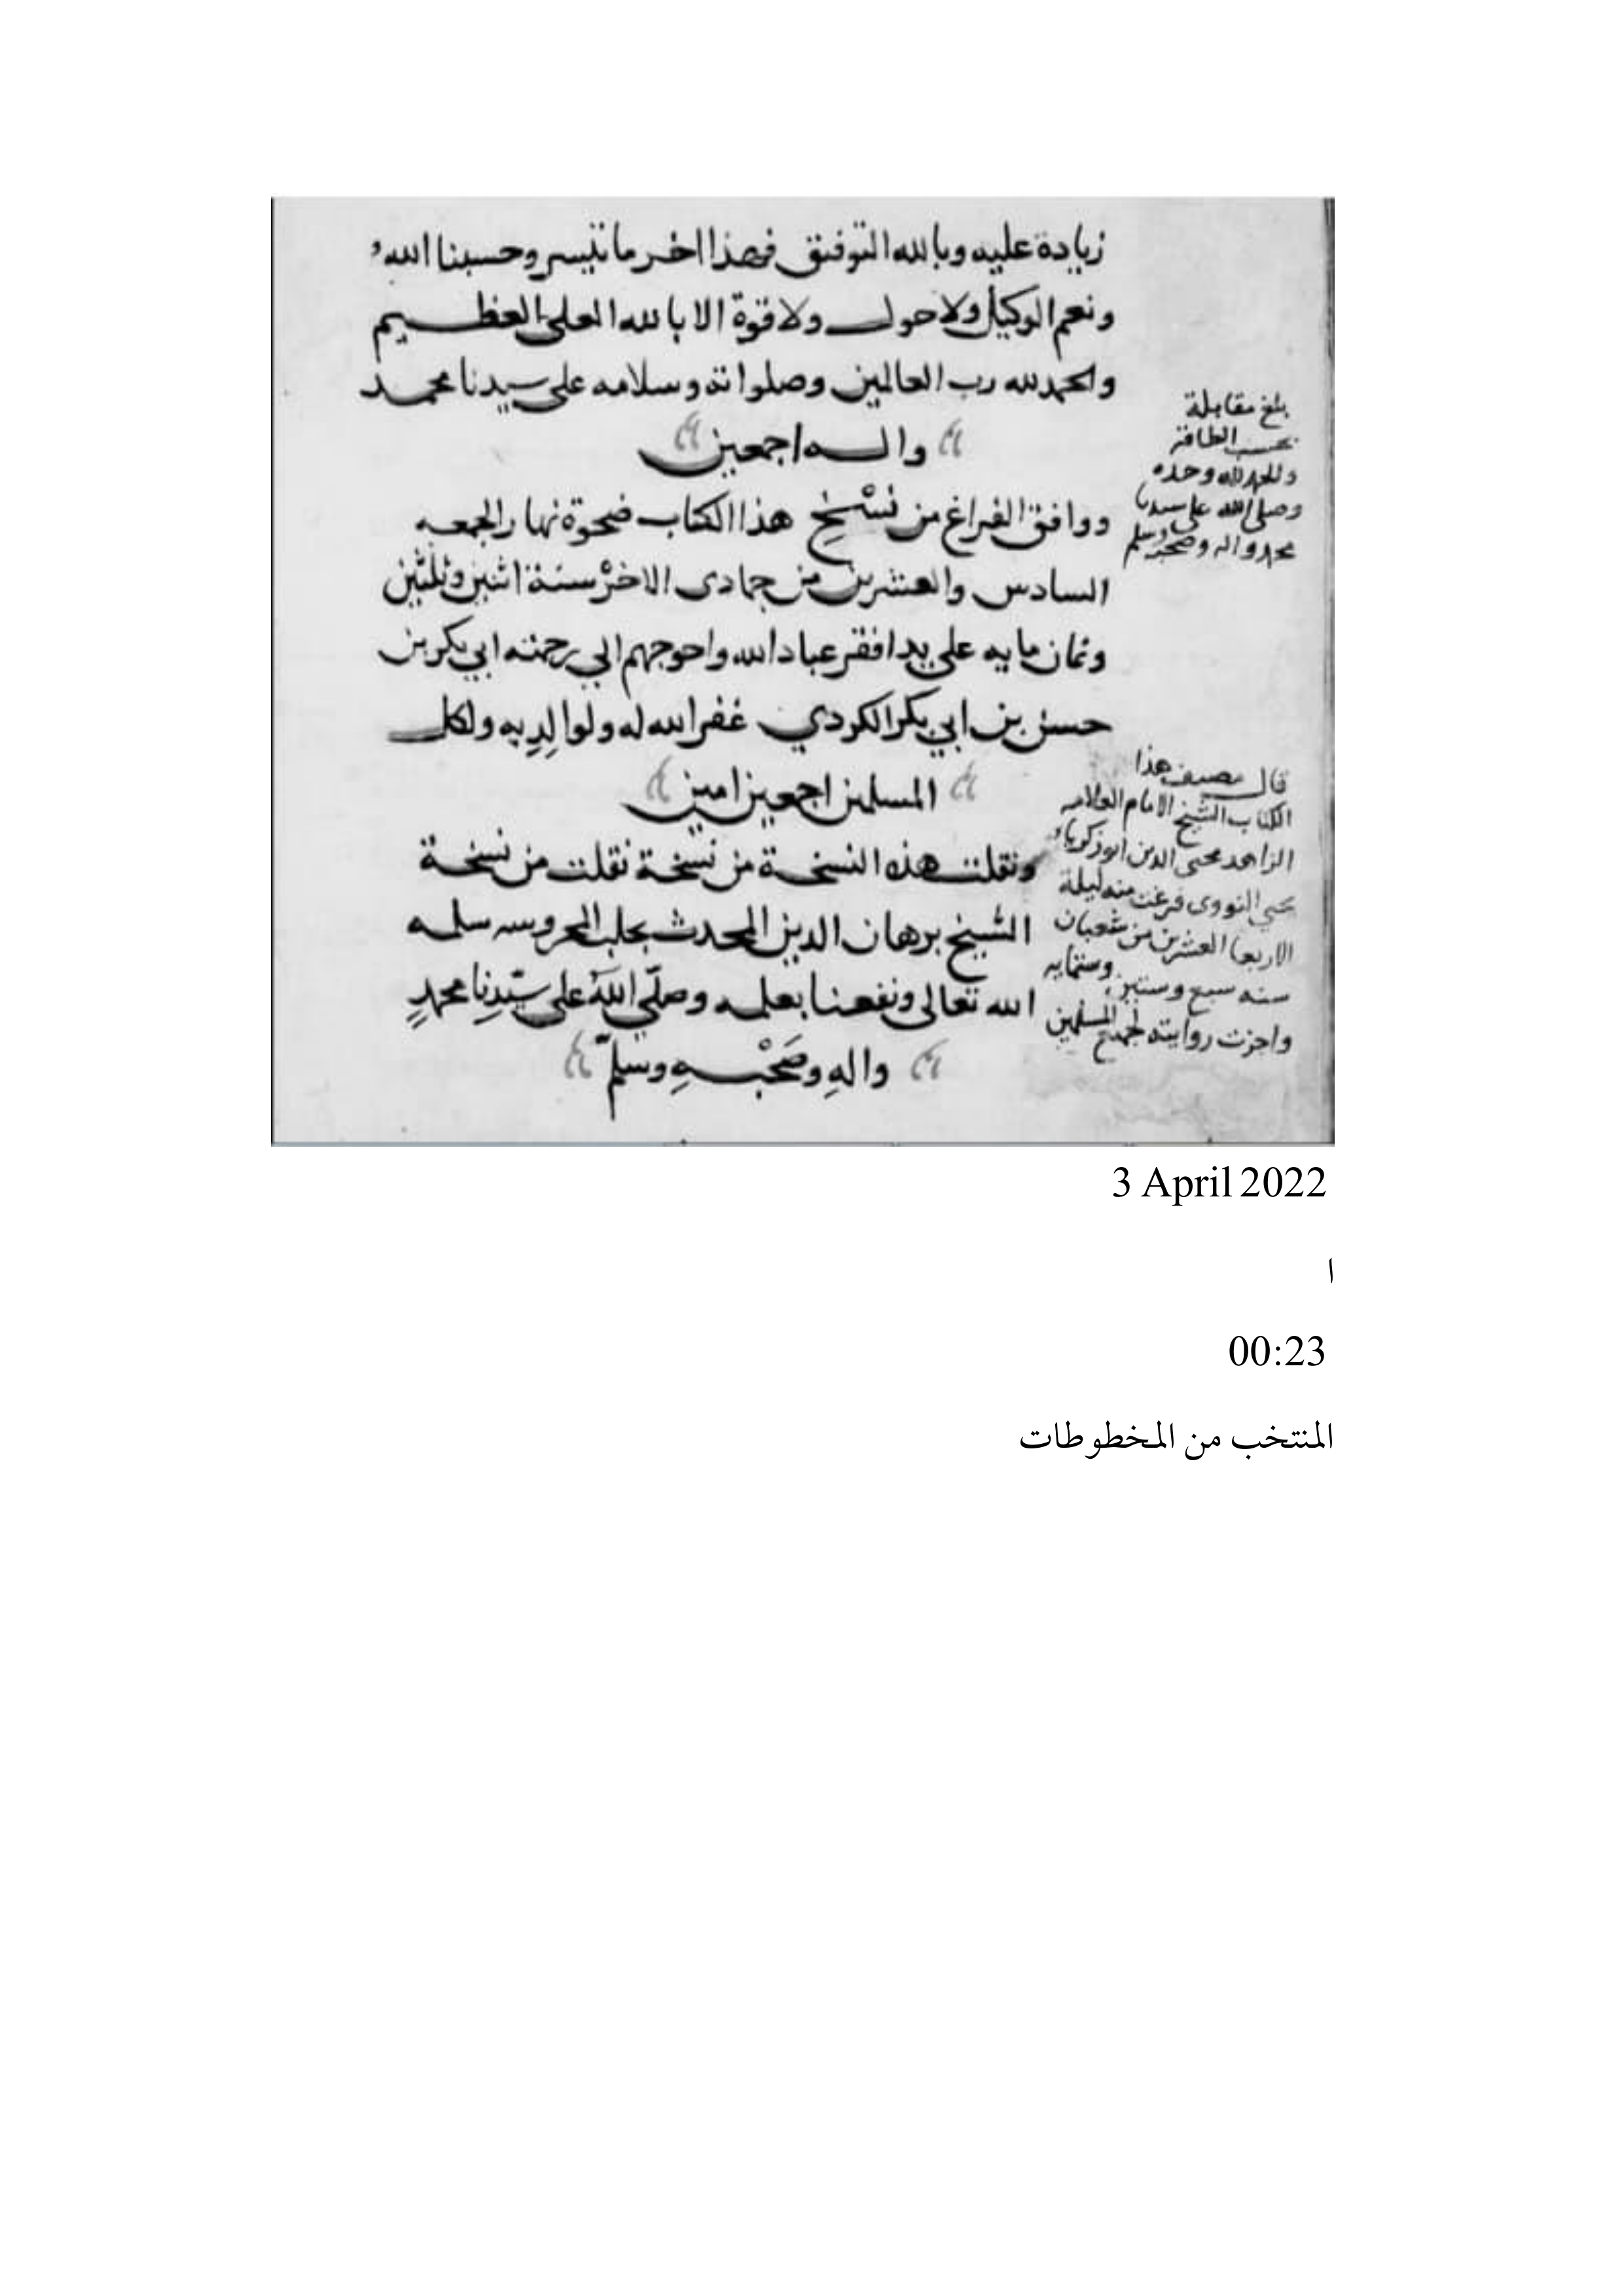 زيادة عليه وبالله التوفيق فهذا اخر ما تيسر وحسبنا الله
ونعم الوكيل ولا حول ولا قوة الا بالله العلي العظيم
والحمد لله رب العالمين وصلواته وسلامه على سيدنا محمد
واله اجمعين
ووافق الفراغ من نسْخِ هذا الكتاب ضحوة نهار الجمعه
السادس والعشرين من جمادى الاخر سنة اثنين وثلثين
وثمان مايه على يد افقر عباد الله واحوجهم الي رحمته ابي بكر بن
حسن بن ابي بكر الكردي غفر الله له ولوالِدِيه ولكل
المسلمين اجمعين امين
ونقلت هذه النسخة من نسخة نقلت من نسخة
الشيخ برهان الدين المحدث بحلب المحروسه سلمه
الله تعالى ونفعنا بعلمه وصلّي اللهَ على سيّدِنا محمدٍ
والهِ وصَحْبِهِ وسلمّ
بلغ مقابلة
بحسب الطاقة
والحمد لله وحده
وصلى الله على سيدنا
محمد واله وصحبه وسلم
قال مصنف هذا
الكتاب الشيخ الامام العلامه
الزاهد محيى الدين ابو زكرياء
يحيى النووى فرغت منه ليلة
الاربعا العشرين من شعبان
سنه سبع وستين وستمايه
واجزت روايته لجميع المسلمين
3 April 2022
ا
00:23
المنتخب من المخطوطات